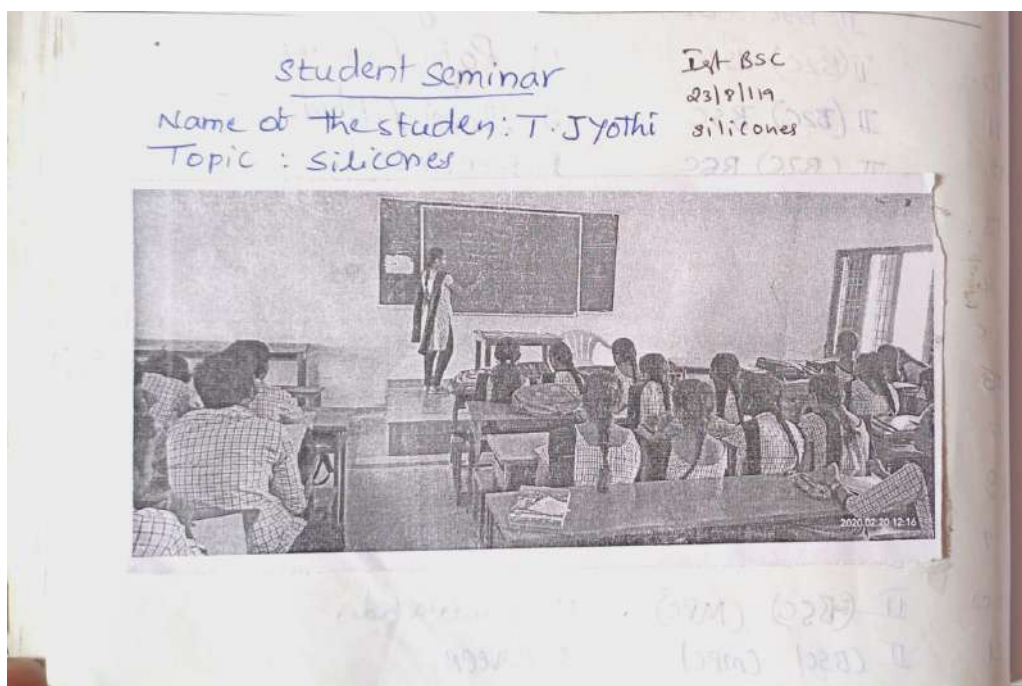 student seminar
Name of the studen: T. Jyothi
Topic : silicones
Ist BSC
23/8/119
silicones
2020.02.20 12:16